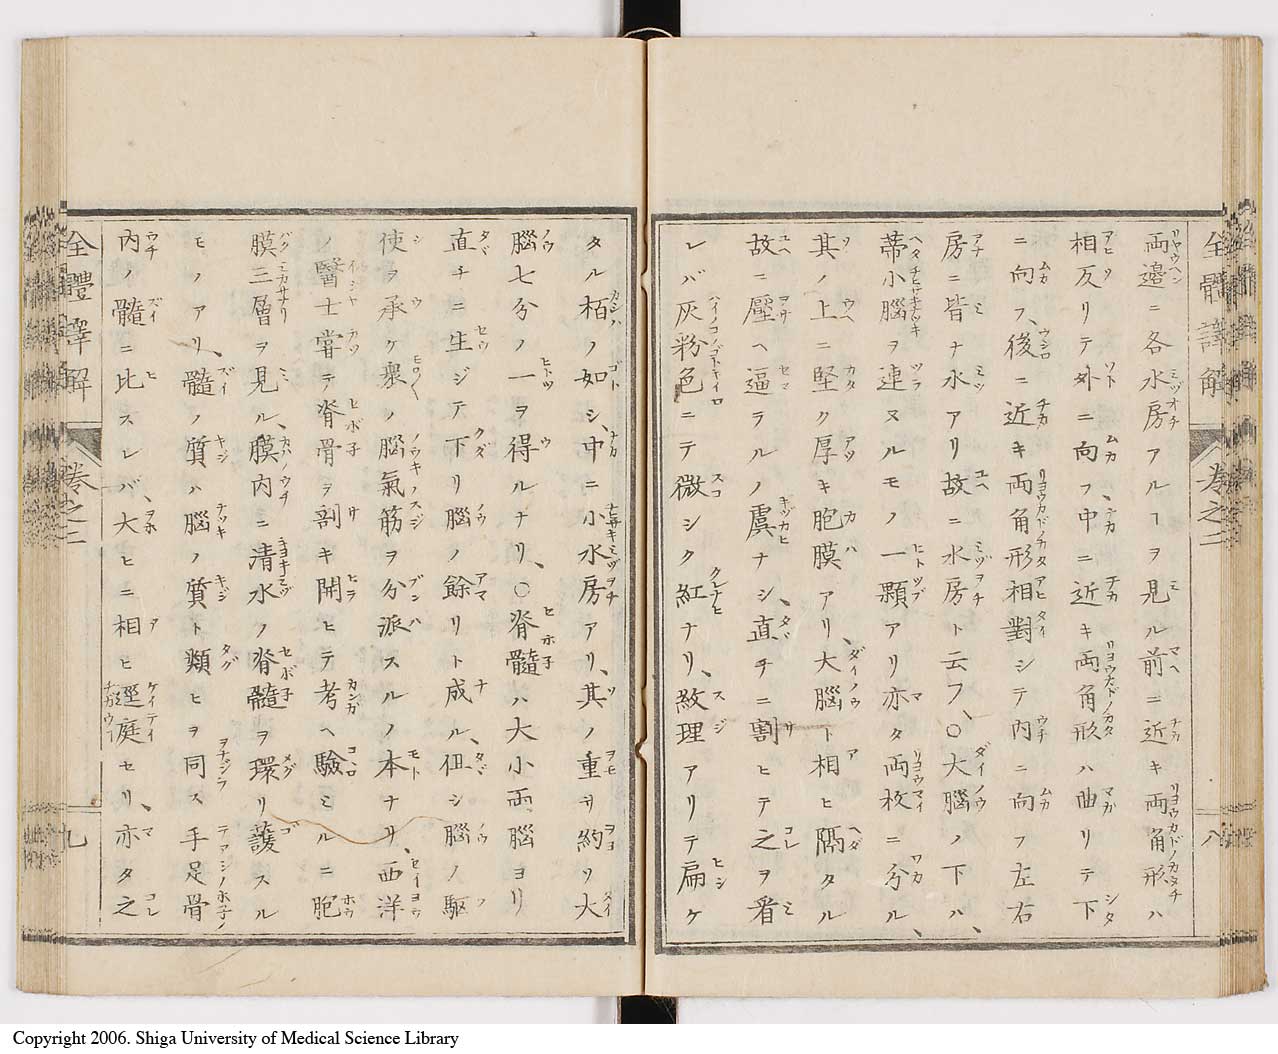 全體譯解 卷之二 八
両邉ニ各水房アルヿヲ見ル前ニ近キ両角形ハ
相反リテ外ニ向フ、中ニ近キ両角形ハ曲リテ下
ニ向フ、後ニ近キ両角形相對シテ内ニ向フ左右
房ニ皆ナ水アリ故ニ水房ト云フ、〇大腦ノ下ハ、
蒂小腦ヲ連ヌルモノ一顆アリ亦タ両枚ニ分ル、
其ノ上ニ堅ク厚キ胞膜アリ、大腦ト相ヒ隔タル
故ニ壓ヘ逼ラルノ虞ナシ、直チニ割ヒテ之ヲ看
レバ灰粉色ニテ微シク紅ナリ、紋理アリテ扁ケ
タル栢ノ如シ、中ニ小水房アリ、其ノ重サ約ソ大
腦七分ノ一ヲ得ルナリ、〇脊髓ハ大小両腦ヨリ
直チニ生ジテ下リ腦ノ餘リト成ル、伹シ腦ノ駆
使ヲ承ケ衆ノ腦氣筋ヲ分派スルノ本ナリ、西洋
ノ醫士甞テ脊骨ヲ剖キ開ヒテ考ヘ驗ミルニ胞
膜三層ヲ見ル、膜内ニ清水ノ脊髓ヲ環リ護スル
モノアリ、髓ノ質ハ腦ノ質ト類ヒヲ同ス手足骨
内ノ髓ニ比スレバ、大ヒニ相ヒ逕庭セリ、亦タ之
全體譯解 卷之二 九
Copyright 2006. Shiga University of Medical Science Library